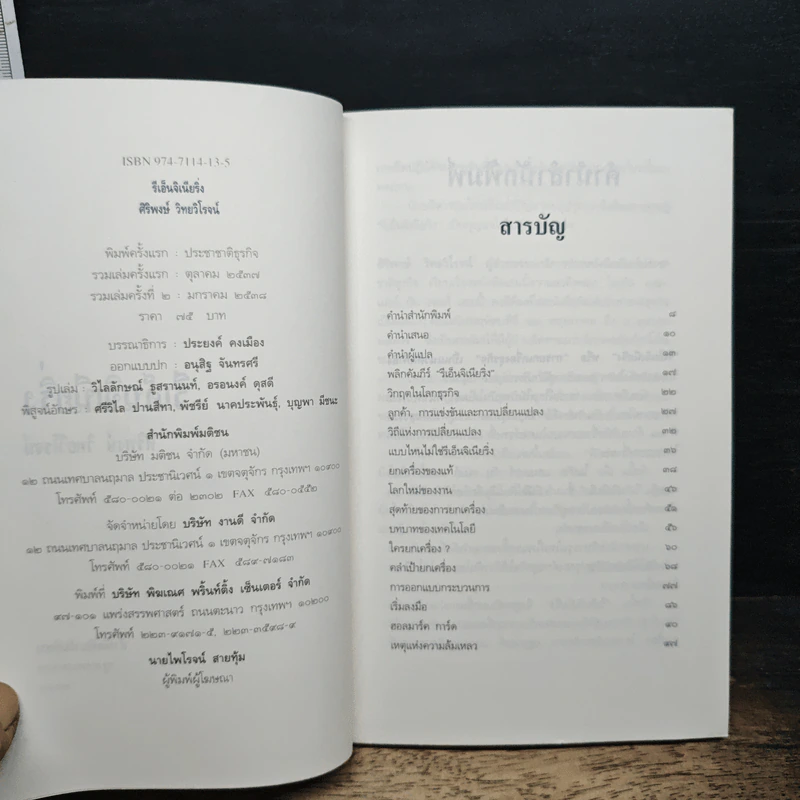 ISBN 974-7114-13-5
รีเอ็นจิเนียริ่ง
ศิริพงษ์ วิทยวิโรจน์
พิมพ์ครั้งแรก : ประชาชาติธุรกิจ
รวมเล่มครั้งแรก : ตุลาคม ๒๕๓๗
รวมเล่มครั้งที่ ๒ : มกราคม ๒๕๓๘
ราคา ๗๕ บาท
บรรณาธิการ : ประยงค์ คงเมือง
ออกแบบปก : อนุสิฐ จันทรศรี
รูปเล่ม : วิไลลักษณ์ ธูสรานนท์, อรอนงค์ ดุสดี
พิสูจน์อักษร : ศรีวิไล ปานสีทา, พัชรีย์ นาคประพันธุ์, บุญพา มีชนะ
สำนักพิมพ์มติชน
บริษัท มติชน จำกัด (มหาชน)
๑๒ ถนนเทศบาลนฤมาล ประชานิเวศน์ ๑ เขตจตุจักร กรุงเทพฯ ๑๐๙๐๐
โทรศัพท์ ๕๘๐-๐๐๒๑ ต่อ ๒๓๐๒ FAX ๕๘๐-๐๕๕๒
จัดจำหน่ายโดย บริษัท งานดี จำกัด
๑๒ ถนนเทศบาลนฤมาล ประชานิเวศน์ ๑ เขตจตุจักร กรุงเทพฯ ๑๐๙๐๐
โทรศัพท์ ๕๘๐-๐๐๒๑ FAX ๕๘๙-๗๑๘๓
พิมพ์ที่ บริษัท พิฆเณศ พริ้นท์ติ้ง เซ็นเตอร์ จำกัด
๙๗-๑๐๑ แพร่งสรรพศาสตร์ ถนนตะนาว กรุงเทพฯ ๑๐๒๐๐
โทรศัพท์ ๒๒๓-๙๑๗๑-๕, ๒๒๓-๓๕๙๘-๙
นายไพโรจน์ สายทุ้ม
ผู้พิมพ์ผู้โฆษณา
สารบัญ
คำนำสำนักพิมพ์ ๘
คำนำเสนอ ๑๐
คำนำผู้แปล ๑๓
พลิกคัมภีร์ "รีเอ็นจิเนียริ่ง" ๑๗
วิกฤตในโลกธุรกิจ ๒๒
ลูกค้า, การแข่งขันและการเปลี่ยนแปลง ๒๗
วิถีแห่งการเปลี่ยนแปลง ๓๒
แบบไหนไม่ใช่รีเอ็นจิเนียริ่ง ๓๖
ยกเครื่องของแท้ ๓๘
โลกใหม่ของงาน ๔๖
สุดท้ายของการยกเครื่อง ๕๑
บทบาทของเทคโนโลยี ๕๖
ใครยกเครื่อง ? ๖๐
คลำเป้ายกเครื่อง ๖๘
การออกแบบกระบวนการ ๗๗
เริ่มลงมือ ๘๖
ฮอลมาร์ค การ์ด ๙๐
เหตุแห่งความล้มเหลว ๙๗